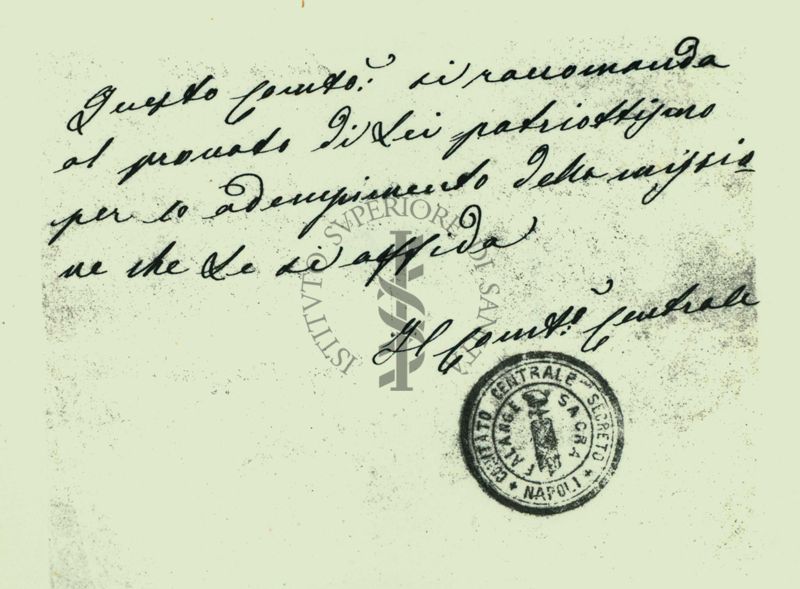 Questo Comto. si raccomanda
al provato di Lei patriottismo
per lo adempimento della missio=
ne che Le si affida
Il Comto. Centrale
COMITATO CENTRALE SECRETO
NAPOLI
FALANGE SACRA
ISTITVTO SVPERIORE DI SANITÀ